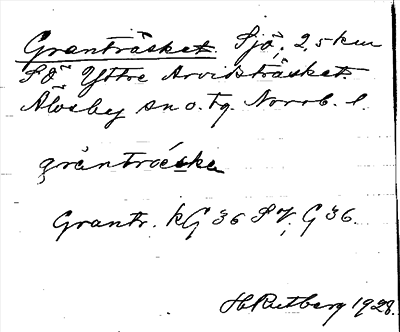 Granträsket. Sjö, 2,5 km
SÖ Yttre Arvidsträsket.
Älvsby sn o. tg. Norrb. l.
gràntrœ́ska
Grantr. kG 36 SV, G 36.
H Rutberg 1928.